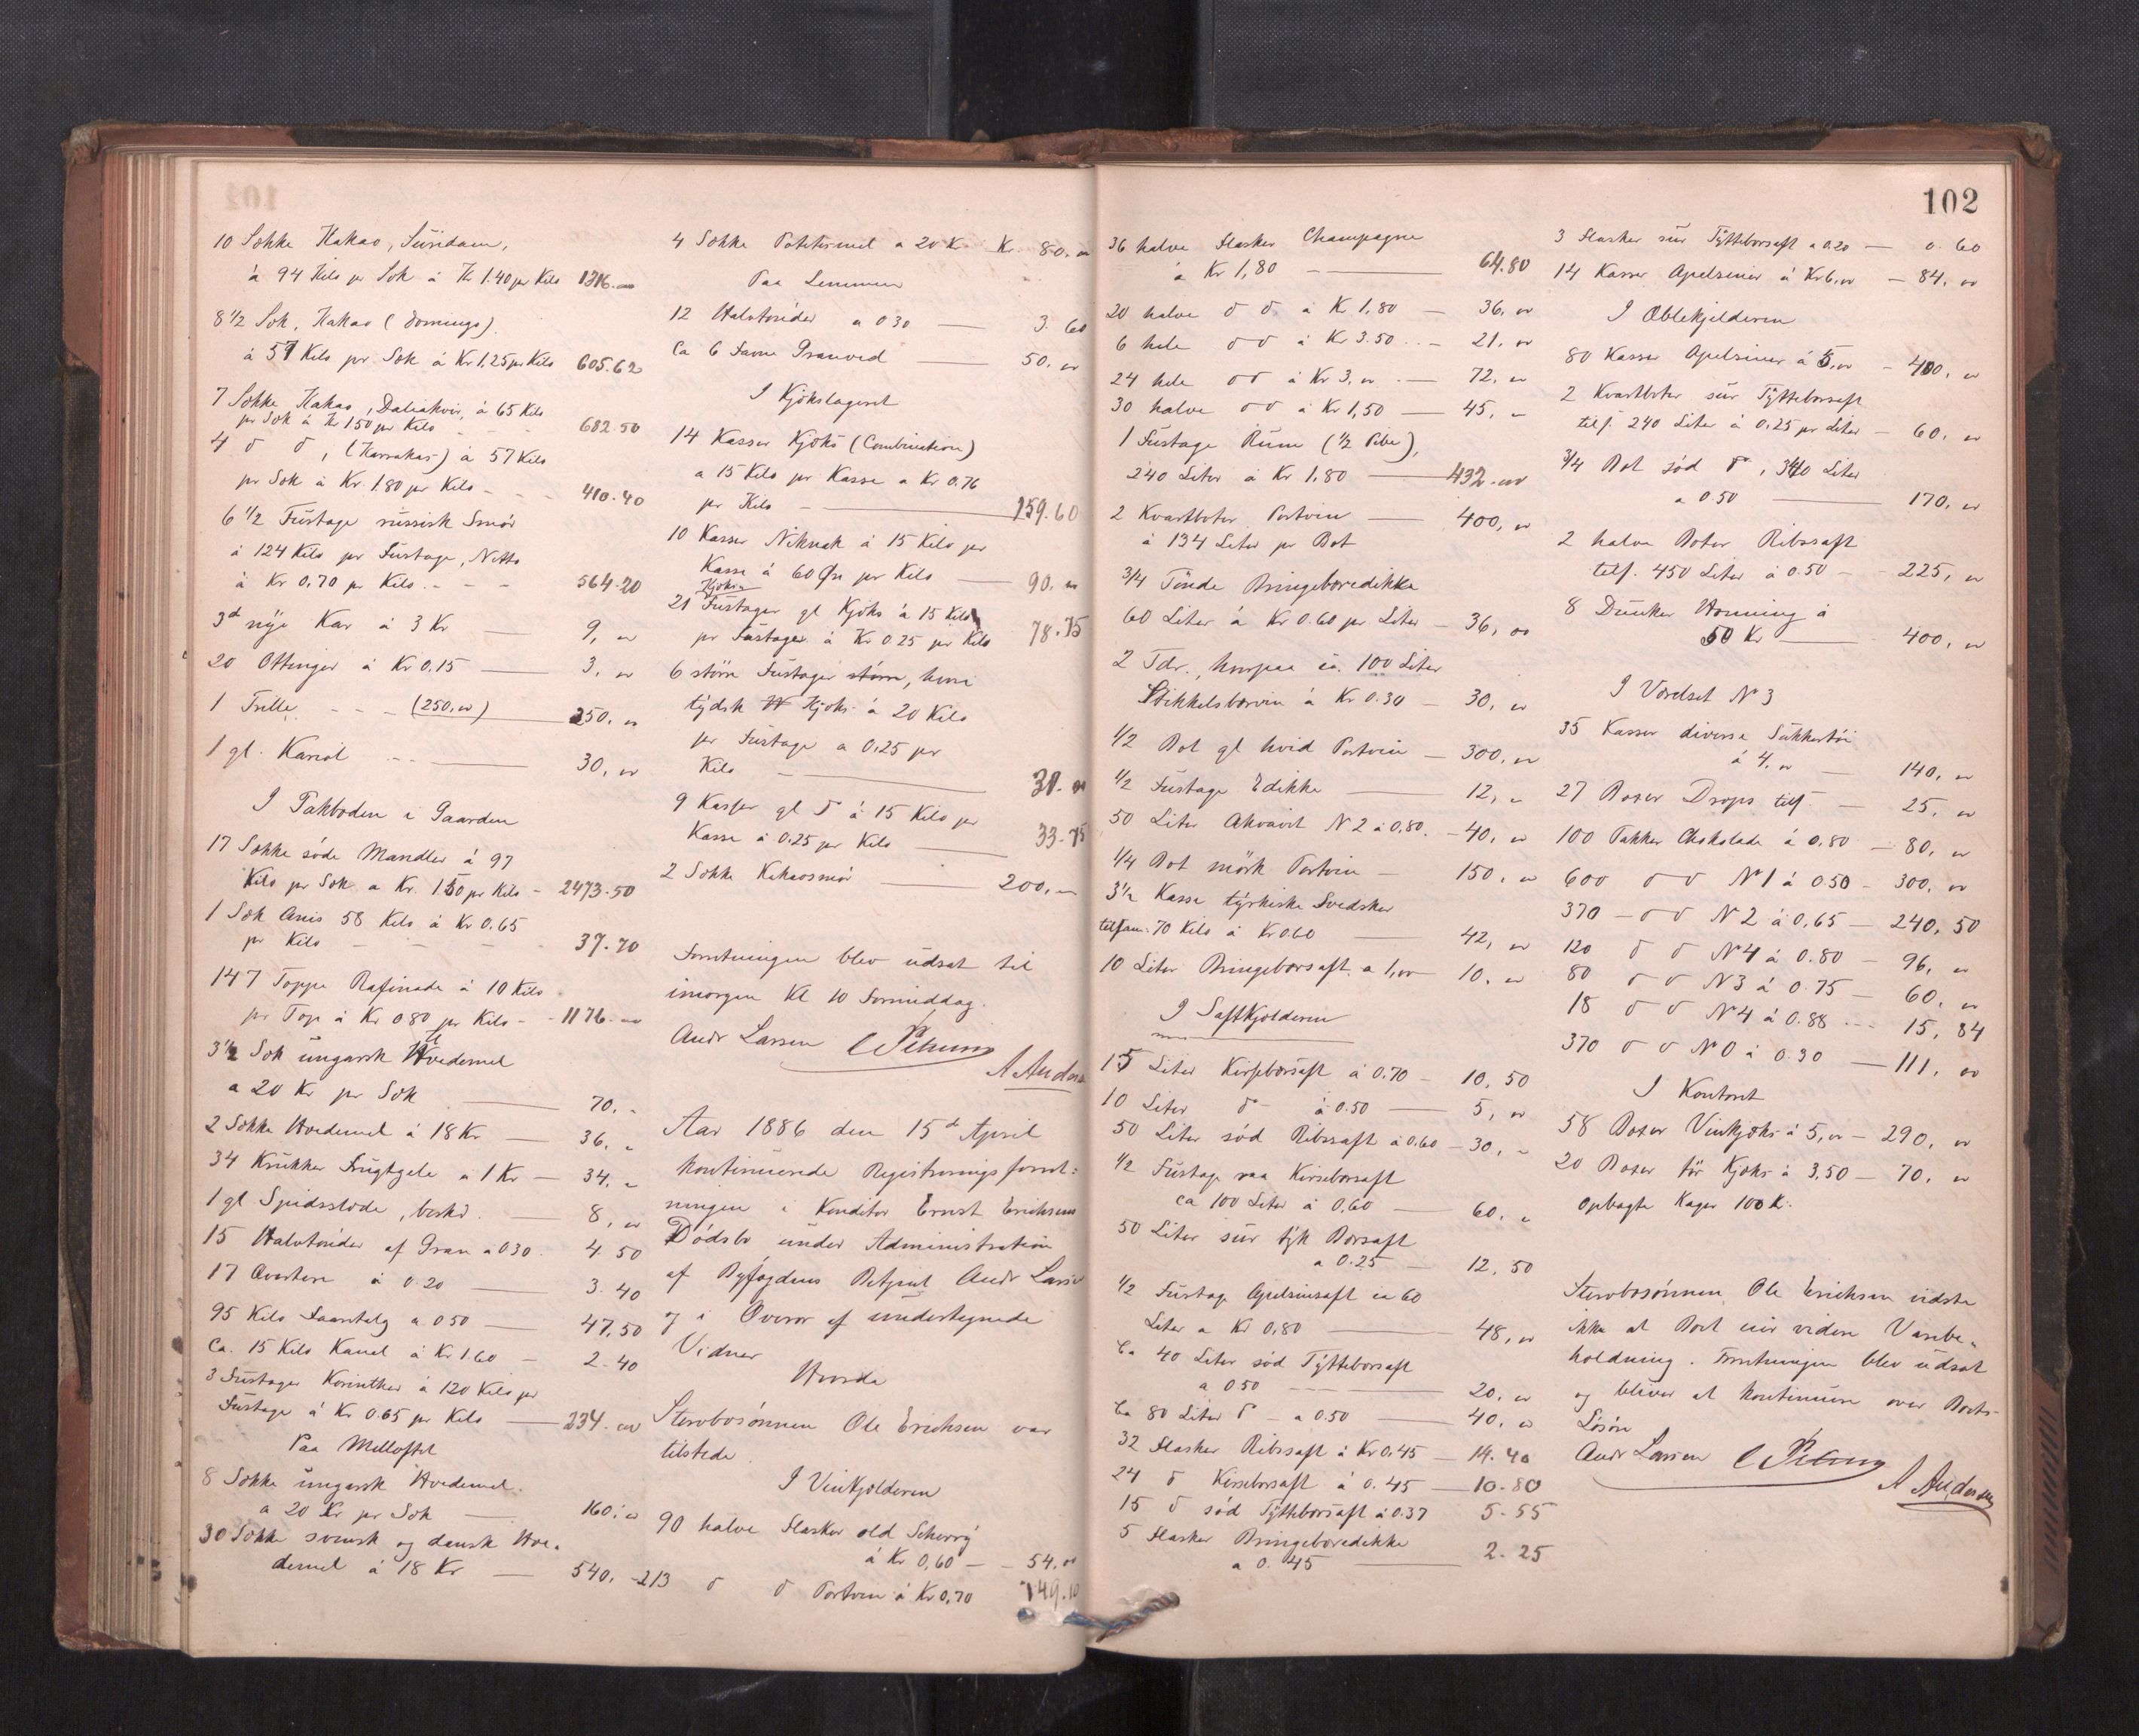 10 Sække Kakao, Suridam,
à 94 Kilo pr Sæk à Kr 1.40 pr Kilo 1316.00
8 1/2 Sæk, Kakao (Domingo)
à 57 Kilo pr Sæk à Kr 1,25 pr Kilo 605.62
7 Sække Kakao, à 65 Kilo
pr Sæk à Kr 1.50 pr Kilo - - - 682.50
4 d d, (Karrakas) à 57 Kilo
pr Sæk à Kr 1.80 pr Kilo - - - 410.40
6 1/2 Füstage rüssisk Smør
à 124 Kilo pr Füstage, Netto
à Kr 0,70 pr Kilo - - - 564.20
3 nye Kar à 3 Kr — 9, 00
20 Ottinger à Kr 0.15 — 3, 00
1 Trille - - - (250,00) 250, 00
1 gl. Kariol - - — 30, 00
I Pakboden i Gaarden
17 Sække søde Mandler à 97
Kilo pr Sæk a Kr. 1.50 pr Kilo - 2473.50
1 Sæk Anis 58 Kilo à Kr 0.65
pr Kilo - - - 37.70
147 Toppe Rafinade à 10 Kilo
pr Top à Kr 0.80 pr Kilo - - 1176.00
3 1/2 Sæk üngarsk Hvedemel
a 20 Kr pr Sæk — 70, "
2 Sække Hvedemel à 18 Kr — 36, "
34 Krükker Frügtgele a 1 Kr — 34, "
1 gl Spidsslæde, besk. — 8, 00
15 Halvtønder af Gran a 0.30 4.50
17 Qvartere à 0.20 — 3.40
95 Kilo Faaretalg a 0.50 — 47,50
Ca. 15 Kilo Kanel à Kr 1.60 — 2.40
3 Füstager Korinther à 120 Kilo pr
Füstage à Kr 0.65 pr Kilo — 234.00
Paa Melloftet
8 Sække üngarsk Hvedemel
a 20 Kr pr Sæk — 160, 00
30 Sække svensk og dansk Hve-
demel à 18 Kr — 540, -
4 Sække Potetesmel a 20 K - Kr 80, 00
Paa Lemmen
12 Halvtønder a 0 30 — 3.60
Ca 6 Favne Granved — 50, 00
I Kjækslageret
14 Kasser Kjæks (Combination)
a 15 Kilo pr Kasse a Kr 0.76
pr Kilo — 159.60
10 Kasser Niknak à 15 Kilo pr
Kasse à 60 Øre pr Kilo — 90. 00
Kjæks
21 Füstager gl Kjæks à 15 Kilo
pr Füstager à Kr 0.25 pr Kilo 78.75
6 større Füstager større, hvori
tydsk Kjæks à 20 Kilo
pr Füstage a 0,25 pr
Kilo — 30. 00
9 Kasser gl d à 15 Kilo pr
Kasse à 0.25 pr Kilo — 33.75
2 Sække Kakaosmør — 200, 00
Forretningen blev üdsat til
imorgen Kl 10 Formiddag.
Andr Larsen
A Anders
Aar 1886 den 15d April
kontinüerede Registreringsforret-
ningen i Konditor Ernst Erichsens
Dødsbo ünder Administration
af Byfogdens Betjent Andr Larsen
og i Overvær af undertegnede
Vidner
Hvorda
Stervbosønnen Ole Erichsen var
tilstede
I Vinkjælderen
90 halve Flasker old Scherry
à Kr 0,60 - - 54.00
213 d d Portvin à Kr 0,70 149.10
102
36 halve Flasker Champagne
à Kr 1,80 — 64.80
20 halve d d à Kr 1,80 — 36, 00
6 hele d d à Kr 3.50 - - 21, 00
24 hele d d à Kr 3, 00 - — 72, 00
30 halve d d à Kr 1,50 — 45, -
1 Füstage Rüm (1/2 Pibe),
240 Liter à Kr 1,80 — 432.00
2 Kvartboter Portvin — 400, 00
à 134 Liter pr Bot
3/4 Tønde Bringebæredikke
60 Liter à Kr 0.60 pr Liter - 36, 00
2 Tdr., hvorpaa ca. 100 Liter
Stikkelsbærvin à Kr 0.30 — 30, 00
1/2 Bot gl hvid Portvin — 300, 00
1/2 Füstage Edikke — 12, "
50 Liter Akvavit N 2 à 0,80. - 40, 00
1/4 Bot mørk Portvin — 150, 00
3 1/2 Kasse tyrkiske Svedsker
tilsam. 70 Kilo à Kr 0.60 — 42, 00
10 Liter Bringebærsaft a 1,00 — 10, 00
I Saftkjælderen
15 Liter Kirsebærsaft à 0.70 - 10,50
10 Liter d - à 0.50 — 5, 00
50 Liter sød Ribssaft à 0.60 - 30, "
1/2 Füstage raa Kirsebærsaft
ca 100 Liter à 0,60 — 60, "
50 Liter sür tyk Bærsaft
a 0.25 — 12,50
1/2 Füstage Apelsinsaft ca 60
Liter a Kr 0,80 — 48, 00
Ca 40 Liter sød Tyttebærsaft
a 0 50 — 20, 00
Ca 80 Liter d - a 0.50 — 40, 00
32 Flasker Ribssaft à Kr 0.45 — 14.40
24 d Kirsebærsaft à 0.45 — 10.80
15 d sød Tyttebærsaft à 0.37 5.55
5 Flasker Bringebæredikke
a 0.45 — 2.25
3 Flasker sür Tyttebærsaft a 0.20 — 0.60
14 Kasser Apelsiner à Kr 6,00 - 84, 00
I Æblekjelderen
80 Kasser Apelsiner à 5,00 - 400, 00
2 Kvartboter sür Tyttebærsaft
tils. 240 Liter à 0.25 pr Liter - 60, 00
3/4 Bot sød d, 340 Liter
a 0.50 — 170, 00
2 halve Boter Ribssaft
tils. 450 Liter à 0.50 - - 225, 00
8 Dünker Honning à
50 Kr — 400, 00
I Værelset N 3
35 Kasser diverse Sükkertøi
à 4, 00 — 140, 00
27 Boxer Drops tils. — 25, 00
100 Pakker Chokolade à 0,80 — 80, 00
600 d d N 1 à 0.50 - 300, 00
370 - d d N 2 à 0,65 — 240,50
120 d d N 4 à 0.80 - 96, 00
80 d d N 3 à 0.75 — 60, 00
18 d d N 4 à 0.88 - - - 15,84
370 d d N 0 à 0.30 — 111, 00
I Kontoret
58 Boxer Vinkjæks à 5,00 — 290, 00
20 Boxer tør Kjæks à 3,50 — 70, 00
opbagte Kager 100 Kr.
Stervbosønnen Ole Erichsen vidste
ikke at Boet eier videre Varebe-
holdning. Forretningen blev üdsat
og bliver at kontinüere over Boets
Løsøre
Andr Larsen
A Andersen